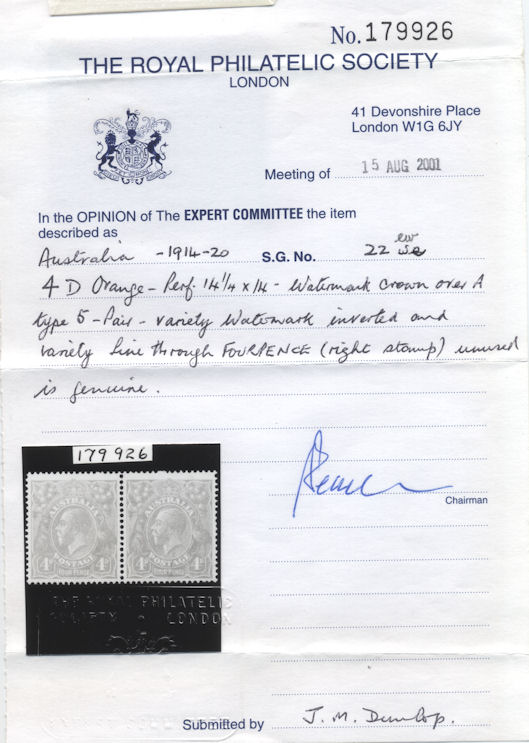 No. 179926
THE ROYAL PHILATELIC SOCIETY
LONDON
41 Devonshire Place
London W1G 6JY
Meeting of 15 AUG 2001
In the OPINION of The EXPERT COMMITTEE the item
described as
Australia - 1914-20 S.G. No. 22 ew
4 D Orange - Perf. 14 1/4 x 14 - Watermark crown over A
type 5 - Pair - variety Watermark inverted and
variety line through FOURPENCE (right stamp) unused
is genuine.
179926
AUSTRALIA AUSTRALIA
4D 4D 4D 4D
POSTAGE POSTAGE
FOUR PENCE FOUR PENCE
Chairman
THE ROYAL PHILATELIC
SOCIETY - LONDON
Submitted by J. M. Dunlop.